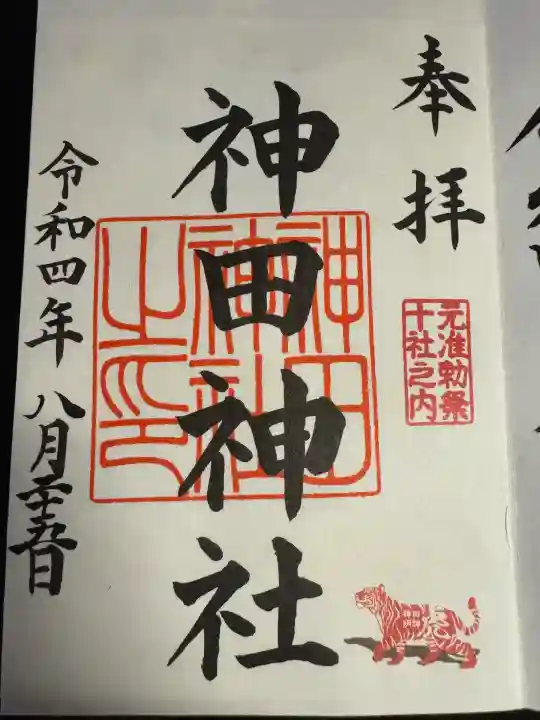 奉拝
元准勅祭
十社之内
神田神社
神田
神社
之印
令和四年八月二十五日
神田
明神